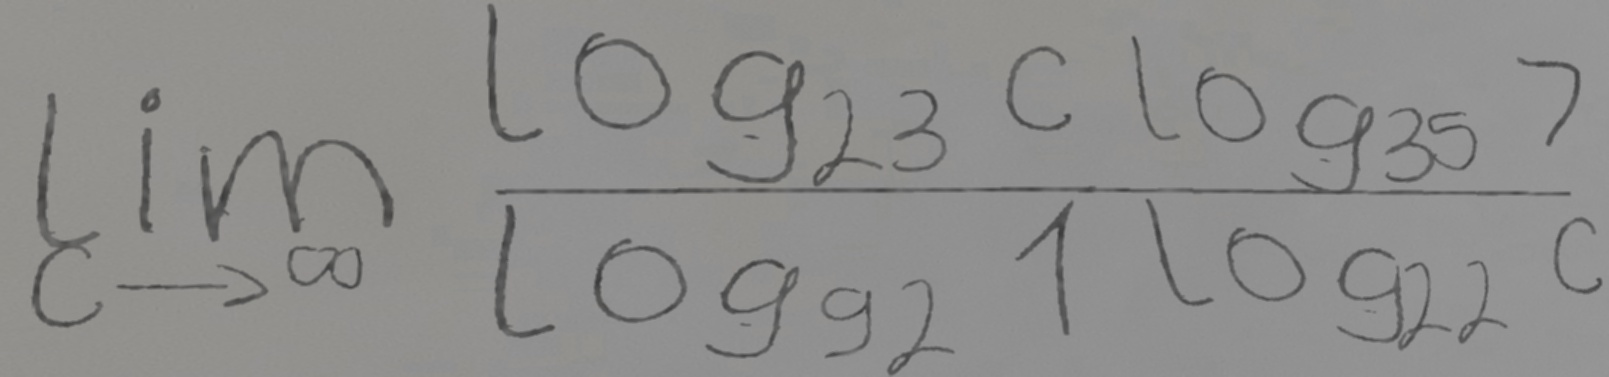 lim_{c→∞} \frac{log_{23} c log_{35} 7}{log_{92} 1 log_{22} c}